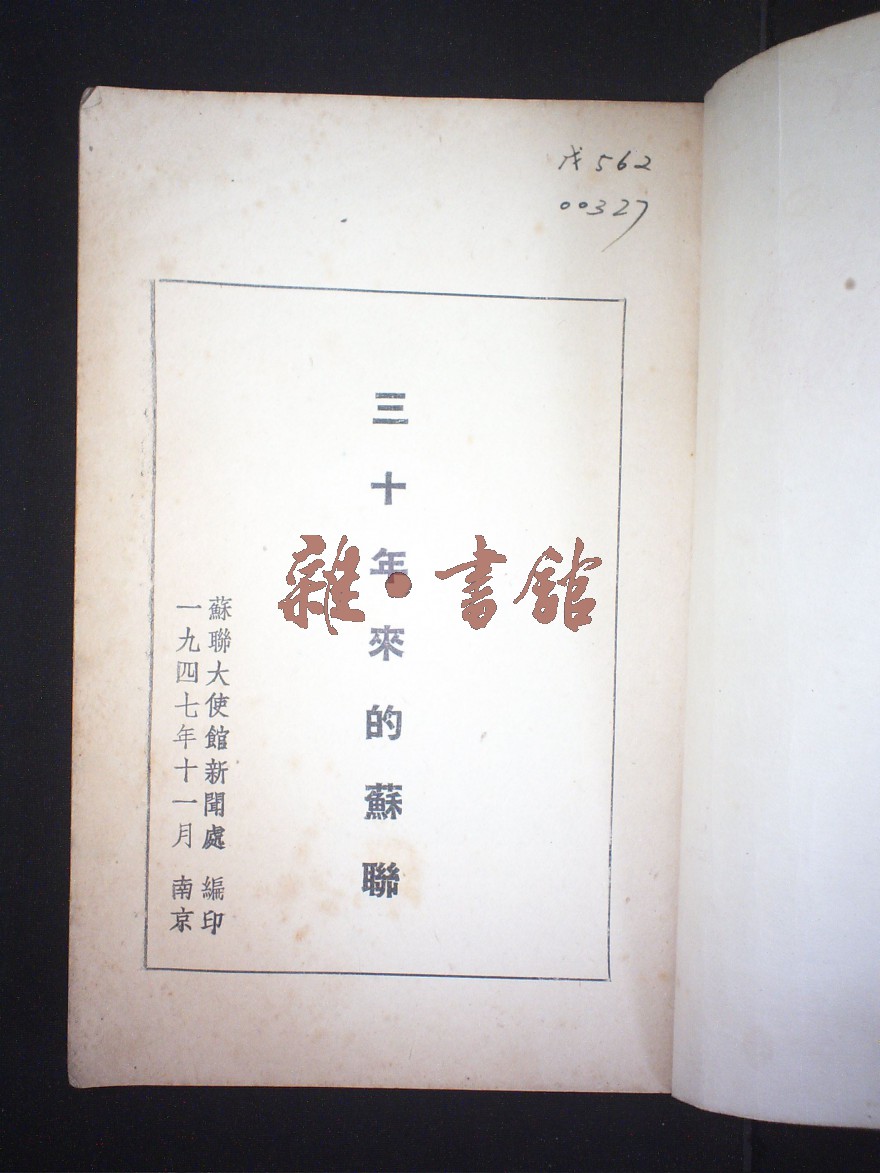 戊562
00327
三十年來的蘇聯
蘇聯大使館新聞處 編印
一九四七年十一月 南京
雜·書館